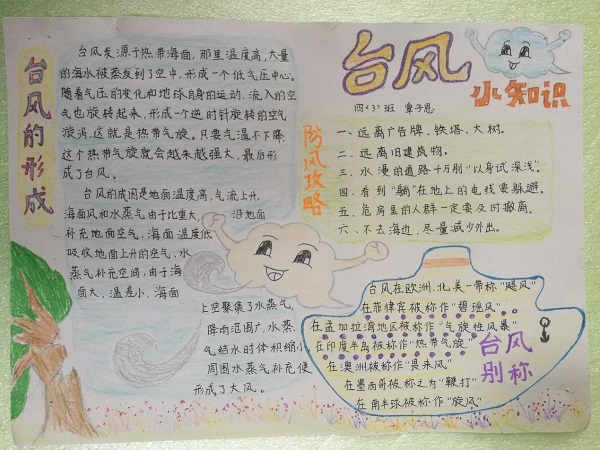 台风
小知识
四(3)班 覃子恩
台风的形成
台风发源于热带海面,那里温度高,大量
的海水被蒸发到了空中,形成一个低气压中心。
随着气压的变化和地球自身的运动,流入的空
气也旋转起来,形成一个逆时针旋转的空气
漩涡,这就是热带气旋。只要气温不下降,
这个热带气旋就会越来越强大,最后形
成了台风。
台风的成因是地面温度高,气流上升,
海面风和水蒸气由于比重大,浮地面
补充地面空气,海面温度低
吸收地面上升的空气,水
蒸气补充空间,由于海
面大,温差小,海面
上空聚集了水蒸气,
降雨范围广,水蒸
气结水时体积缩小,
周围水蒸气补充便
形成了大风。
防风攻略
一、远离广告牌、铁塔、大树。
二、远离旧建筑物。
三、水漫的道路千万别“以身试深浅”。
四、看到“躺”在地上的电线要躲避。
五、危房里的人群一定要及时撤离。
六、不去海边,尽量减少外出。
台风在欧洲、北美一带称“飓风”
在菲律宾被称作“碧瑶风”
在孟加拉湾地区被称作“气旋性风暴”
在印度半岛被称作“热带气旋”
在澳洲被称作“畏来风”
在墨西哥被称之为“鞭打”
在南半球被称作“旋风”
台风
别称